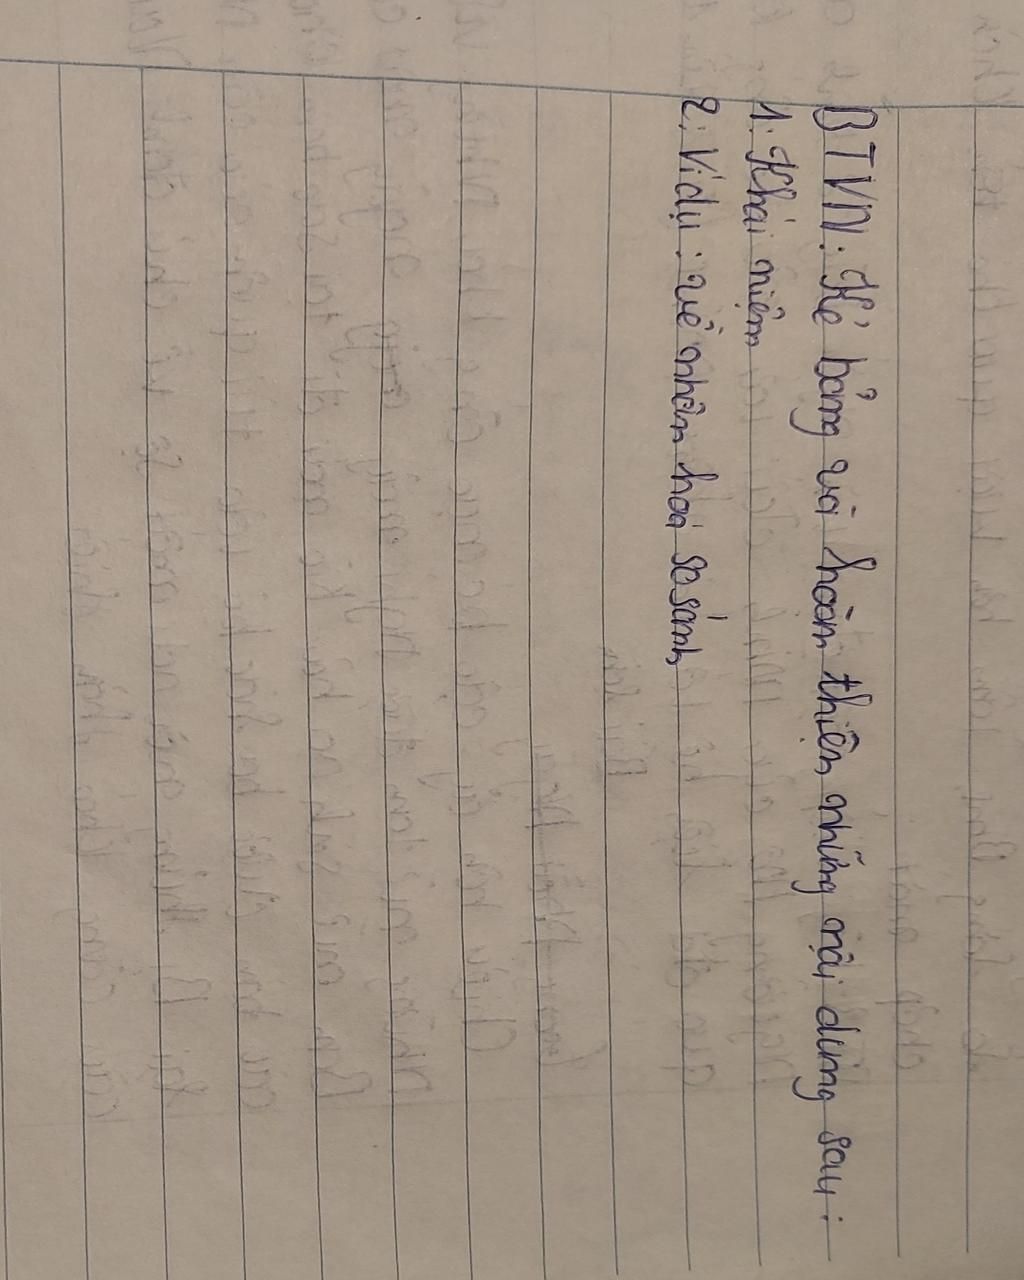 BTVN: Kẻ bảng và hoàn thiện những nội dung sau:
1. Khái niệm
2. Ví dụ: về nhân hoá so sánh